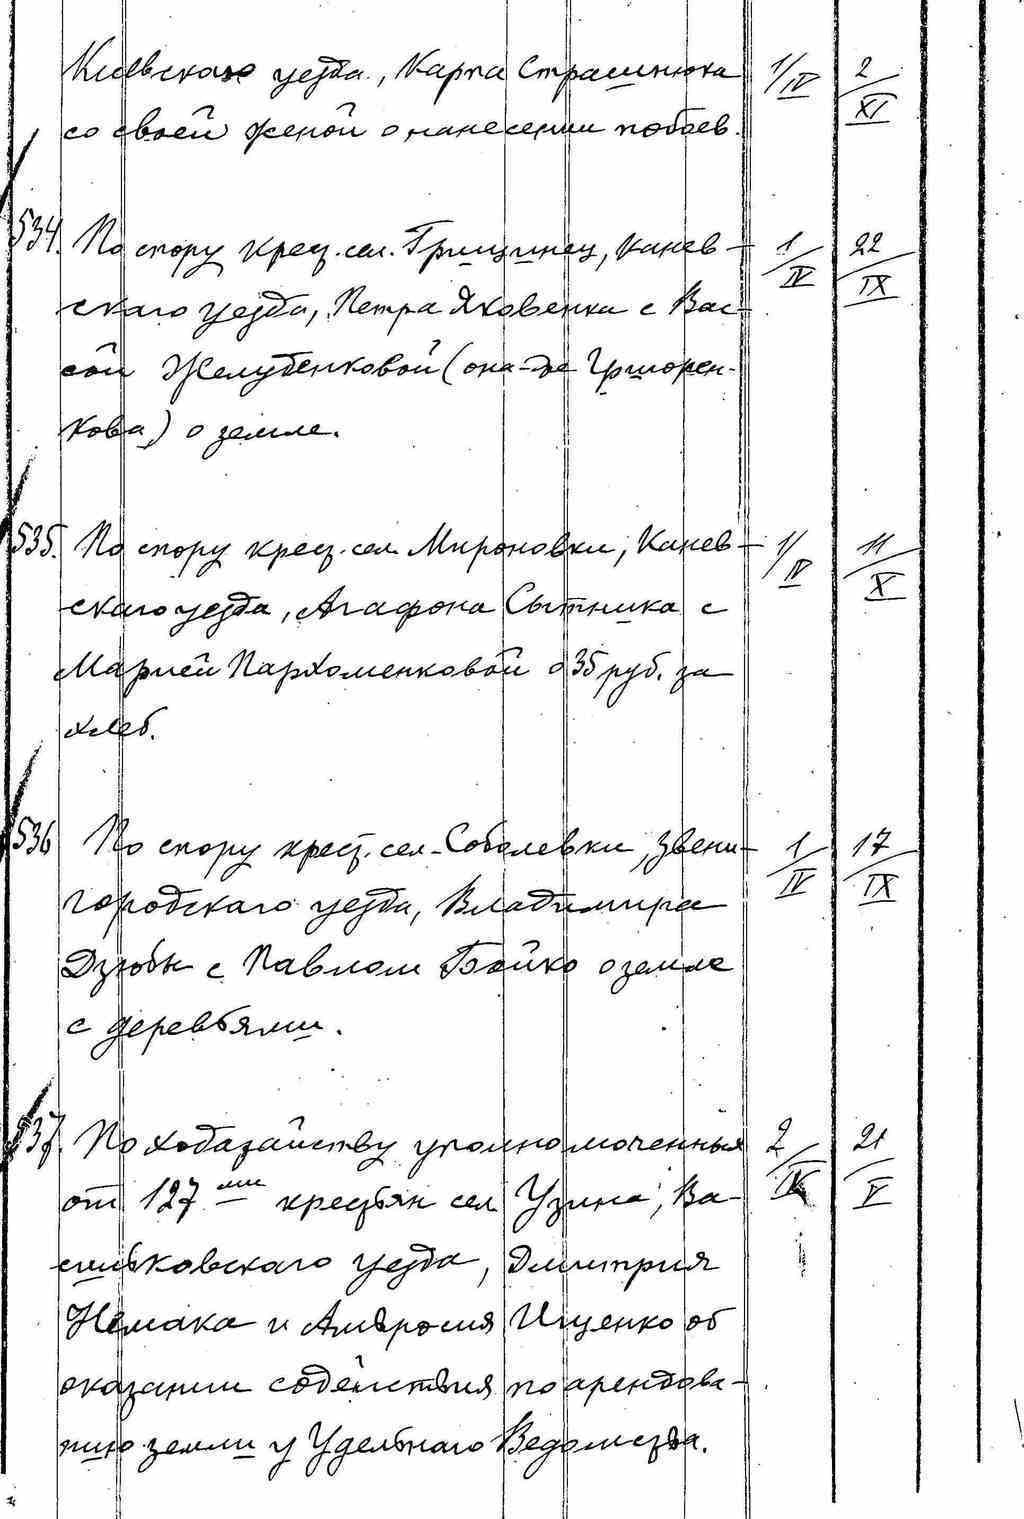 Киевского уезда, Карпа Страшнюка 1/IV 2/XI
со своей женой о нанесении побоев.
534. По спору крест. сел. Грищинец, Канев- 1/IV 22/IX
скаго уезда, Петра Яковенки с Вас-
сой Желубенковой (она-же Григорен-
кова) о земле.
535. По спору крест. сел. Мироновки, Канев- 1/IV 11/X
скаго уезда, Агафона Сытника с
Марией Пархоменковой о 35 руб. за
хлеб.
536 По спору крест. сел. Соболевки, Звени- 1/IV 17/IX
городскаго уезда, Владимира
Дзюбы с Павлом Бойко о земле
с деревьями.
537. По ходатайству уполномоченных 2/IV 21/V
от 127ми крестьян сел. Узина, Ва-
сильковскаго уезда, Дмитрия
Немака и Амвросия Ищенко об
оказании содействия по арендова-
нию земли у Удельнаго Ведомства.